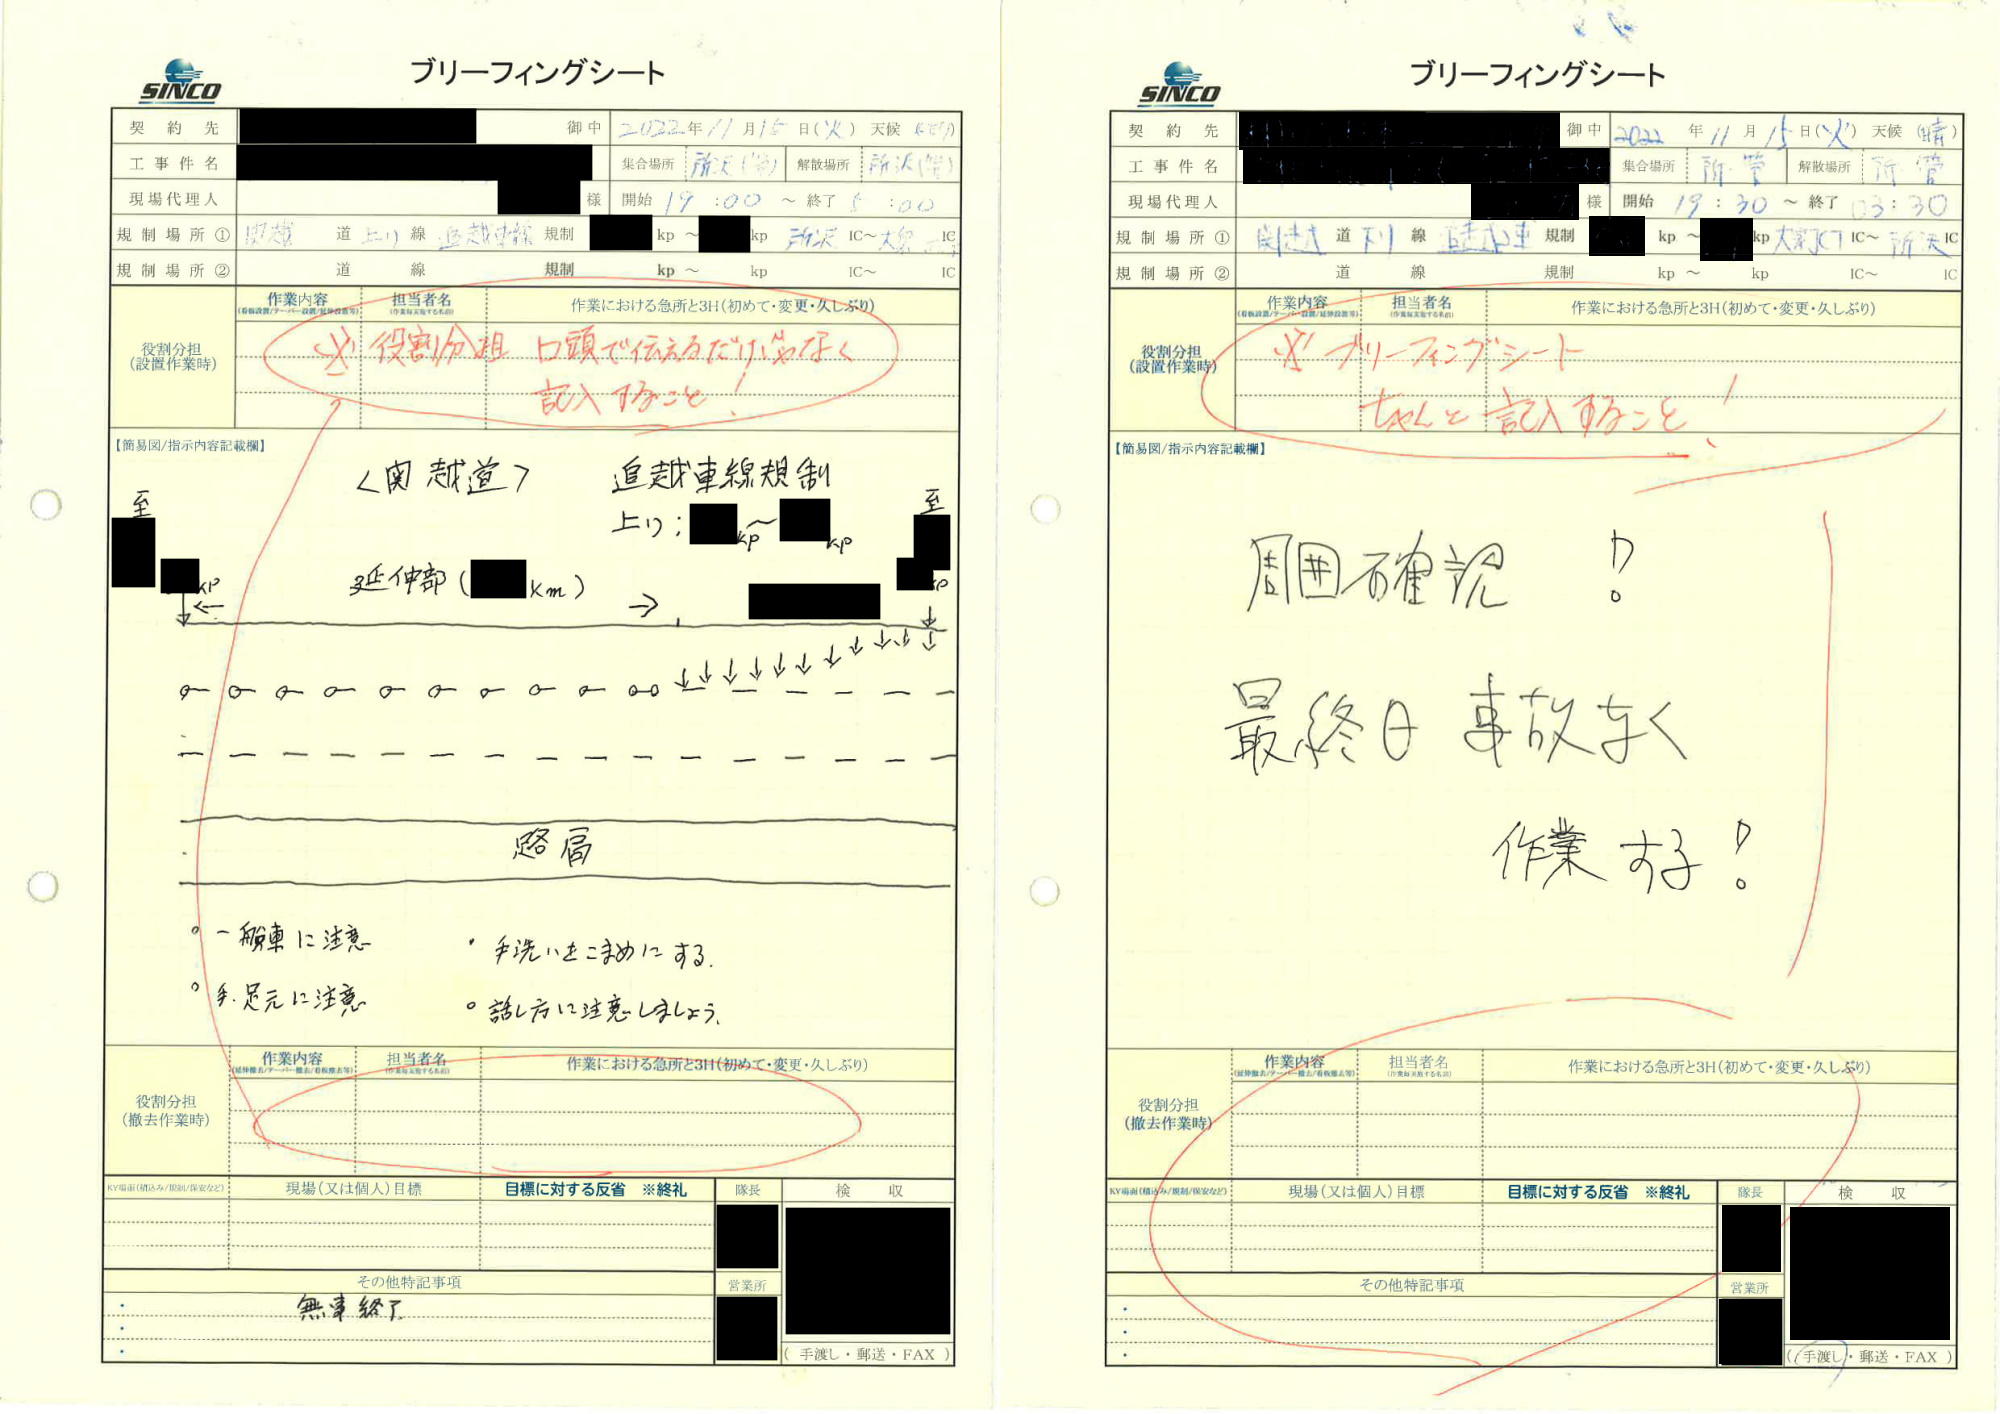 SINCO
ブリーフィングシート
契約先 御中 2022年11月15日(火) 天候
工事件名 集合場所 所沢(管) 解散場所 所沢(管)
現場代理人 様 開始 19:00 ～ 終了 5:00
規制場所① 関越 道 上り 線 追越車線 規制 kp ～ kp 所沢 IC～ IC
規制場所② 道 線 規制 kp ～ kp IC～ IC
役割分担
(設置作業時)
作業内容 担当者名 作業における急所と3H(初めて・変更・久しぶり)
(看板設置/テーパー設置/延伸設置等) (作業毎実施する名前)
※役割分担 口頭で伝えるだけじゃなく
記入すること!
【簡易図/指示内容記載欄】
<関越道> 追越車線規制
至 至
上り; kp～ kp
kp 延伸部( km) → kp
路肩
・一般車に注意 ・手洗いをこまめにする.
・手.足元に注意 ・話し方に注意しましょう.
役割分担
(撤去作業時)
作業内容 担当者名 作業における急所と3H(初めて・変更・久しぶり)
(延伸撤去/テーパー撤去/看板撤去等) (作業毎実施する名前)
KY場面(積込み/規制/保安など) 現場(又は個人)目標 目標に対する反省 ※終礼 隊長 検収
その他特記事項 営業所
・ 無事終了
・
・ (手渡し・郵送・FAX)
SINCO
ブリーフィングシート
契約先 御中 2022年11月15日(火) 天候(晴)
工事件名 集合場所 所.管 解散場所 所.管
現場代理人 様 開始 19:30 ～ 終了 03:30
規制場所① 関越 道 下り 線 追越車 規制 kp ～ kp 大泉JCT IC～ 所沢 IC
規制場所② 道 線 規制 kp ～ kp IC～ IC
役割分担
(設置作業時)
作業内容 担当者名 作業における急所と3H(初めて・変更・久しぶり)
(看板設置/テーパー設置/延伸設置等) (作業毎実施する名前)
※ブリーフィングシート
ちゃんと記入すること!
【簡易図/指示内容記載欄】
周囲確認!
最終日 事故なく
作業する!
役割分担
(撤去作業時)
作業内容 担当者名 作業における急所と3H(初めて・変更・久しぶり)
(延伸撤去/テーパー撤去/看板撤去等) (作業毎実施する名前)
KY場面(積込み/規制/保安など) 現場(又は個人)目標 目標に対する反省 ※終礼 隊長 検収
その他特記事項 営業所
・
・
・ (手渡し・郵送・FAX)